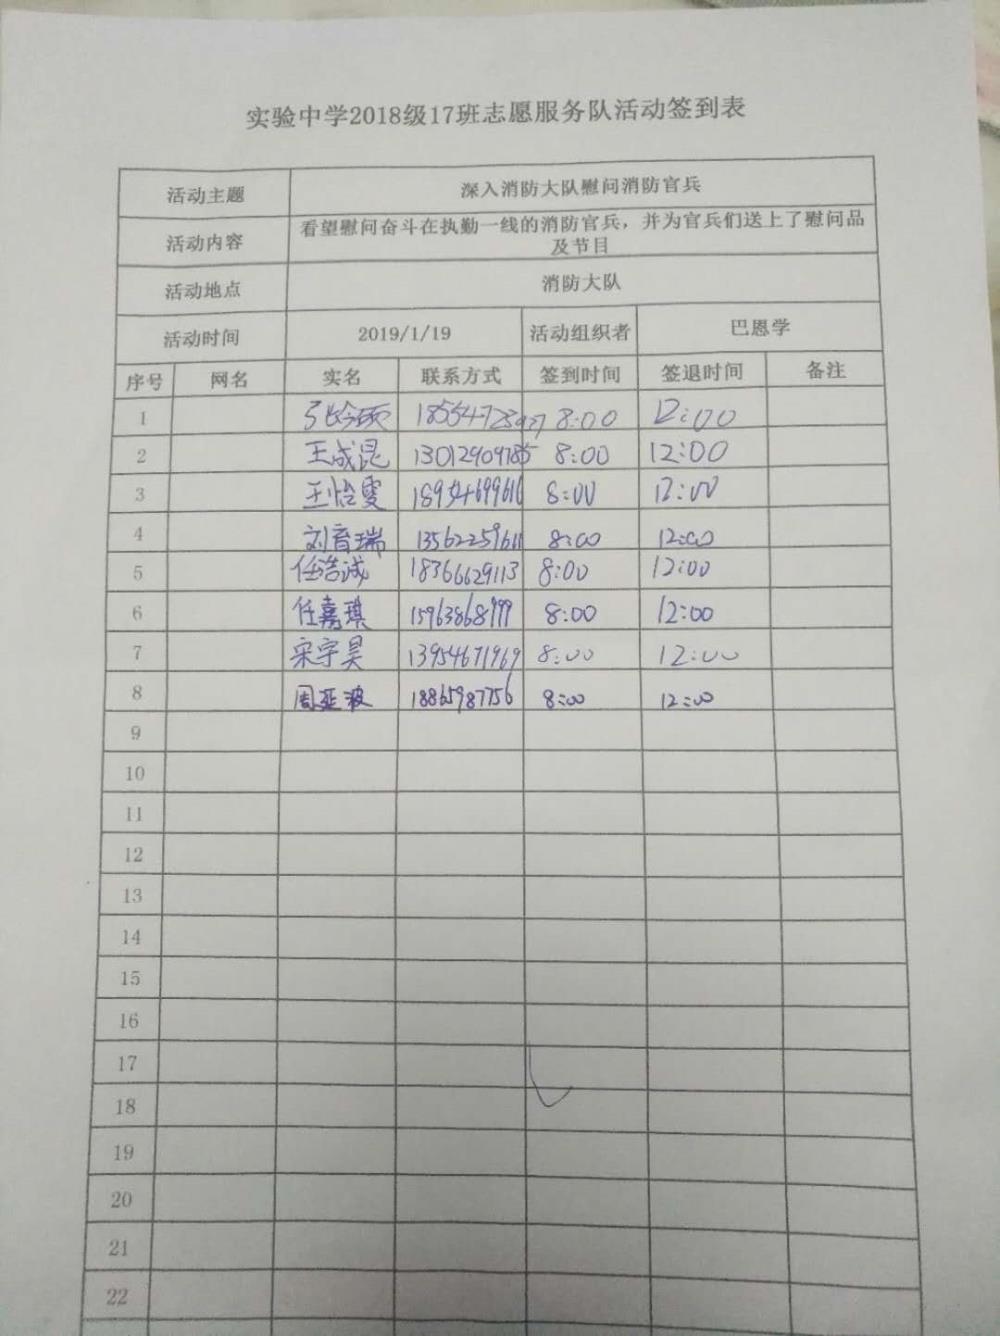 实验中学2018级17班志愿服务队活动签到表
活动主题 深入消防大队慰问消防官兵
活动内容 看望慰问奋斗在执勤一线的消防官兵，并为官兵们送上了慰问品
及节目
活动地点 消防大队
活动时间 2019/1/19 活动组织者 巴恩学
序号 网名 实名 联系方式 签到时间 签退时间 备注
1 8:00 12:00
2 王成昆 8:00 12:00
3 王怡雯 18954699616 8:00 12:00
4 刘育瑞 13562259611 8:00 12:00
5 任浩诚 18366629113 8:00 12:00
6 任嘉琪 15963868999 8:00 12:00
7 宋宇昊 13954671969 8:00 12:00
8 周亚波 18865987756 8:00 12:00
9
10
11
12
13
14
15
16
17
18
19
20
21
22